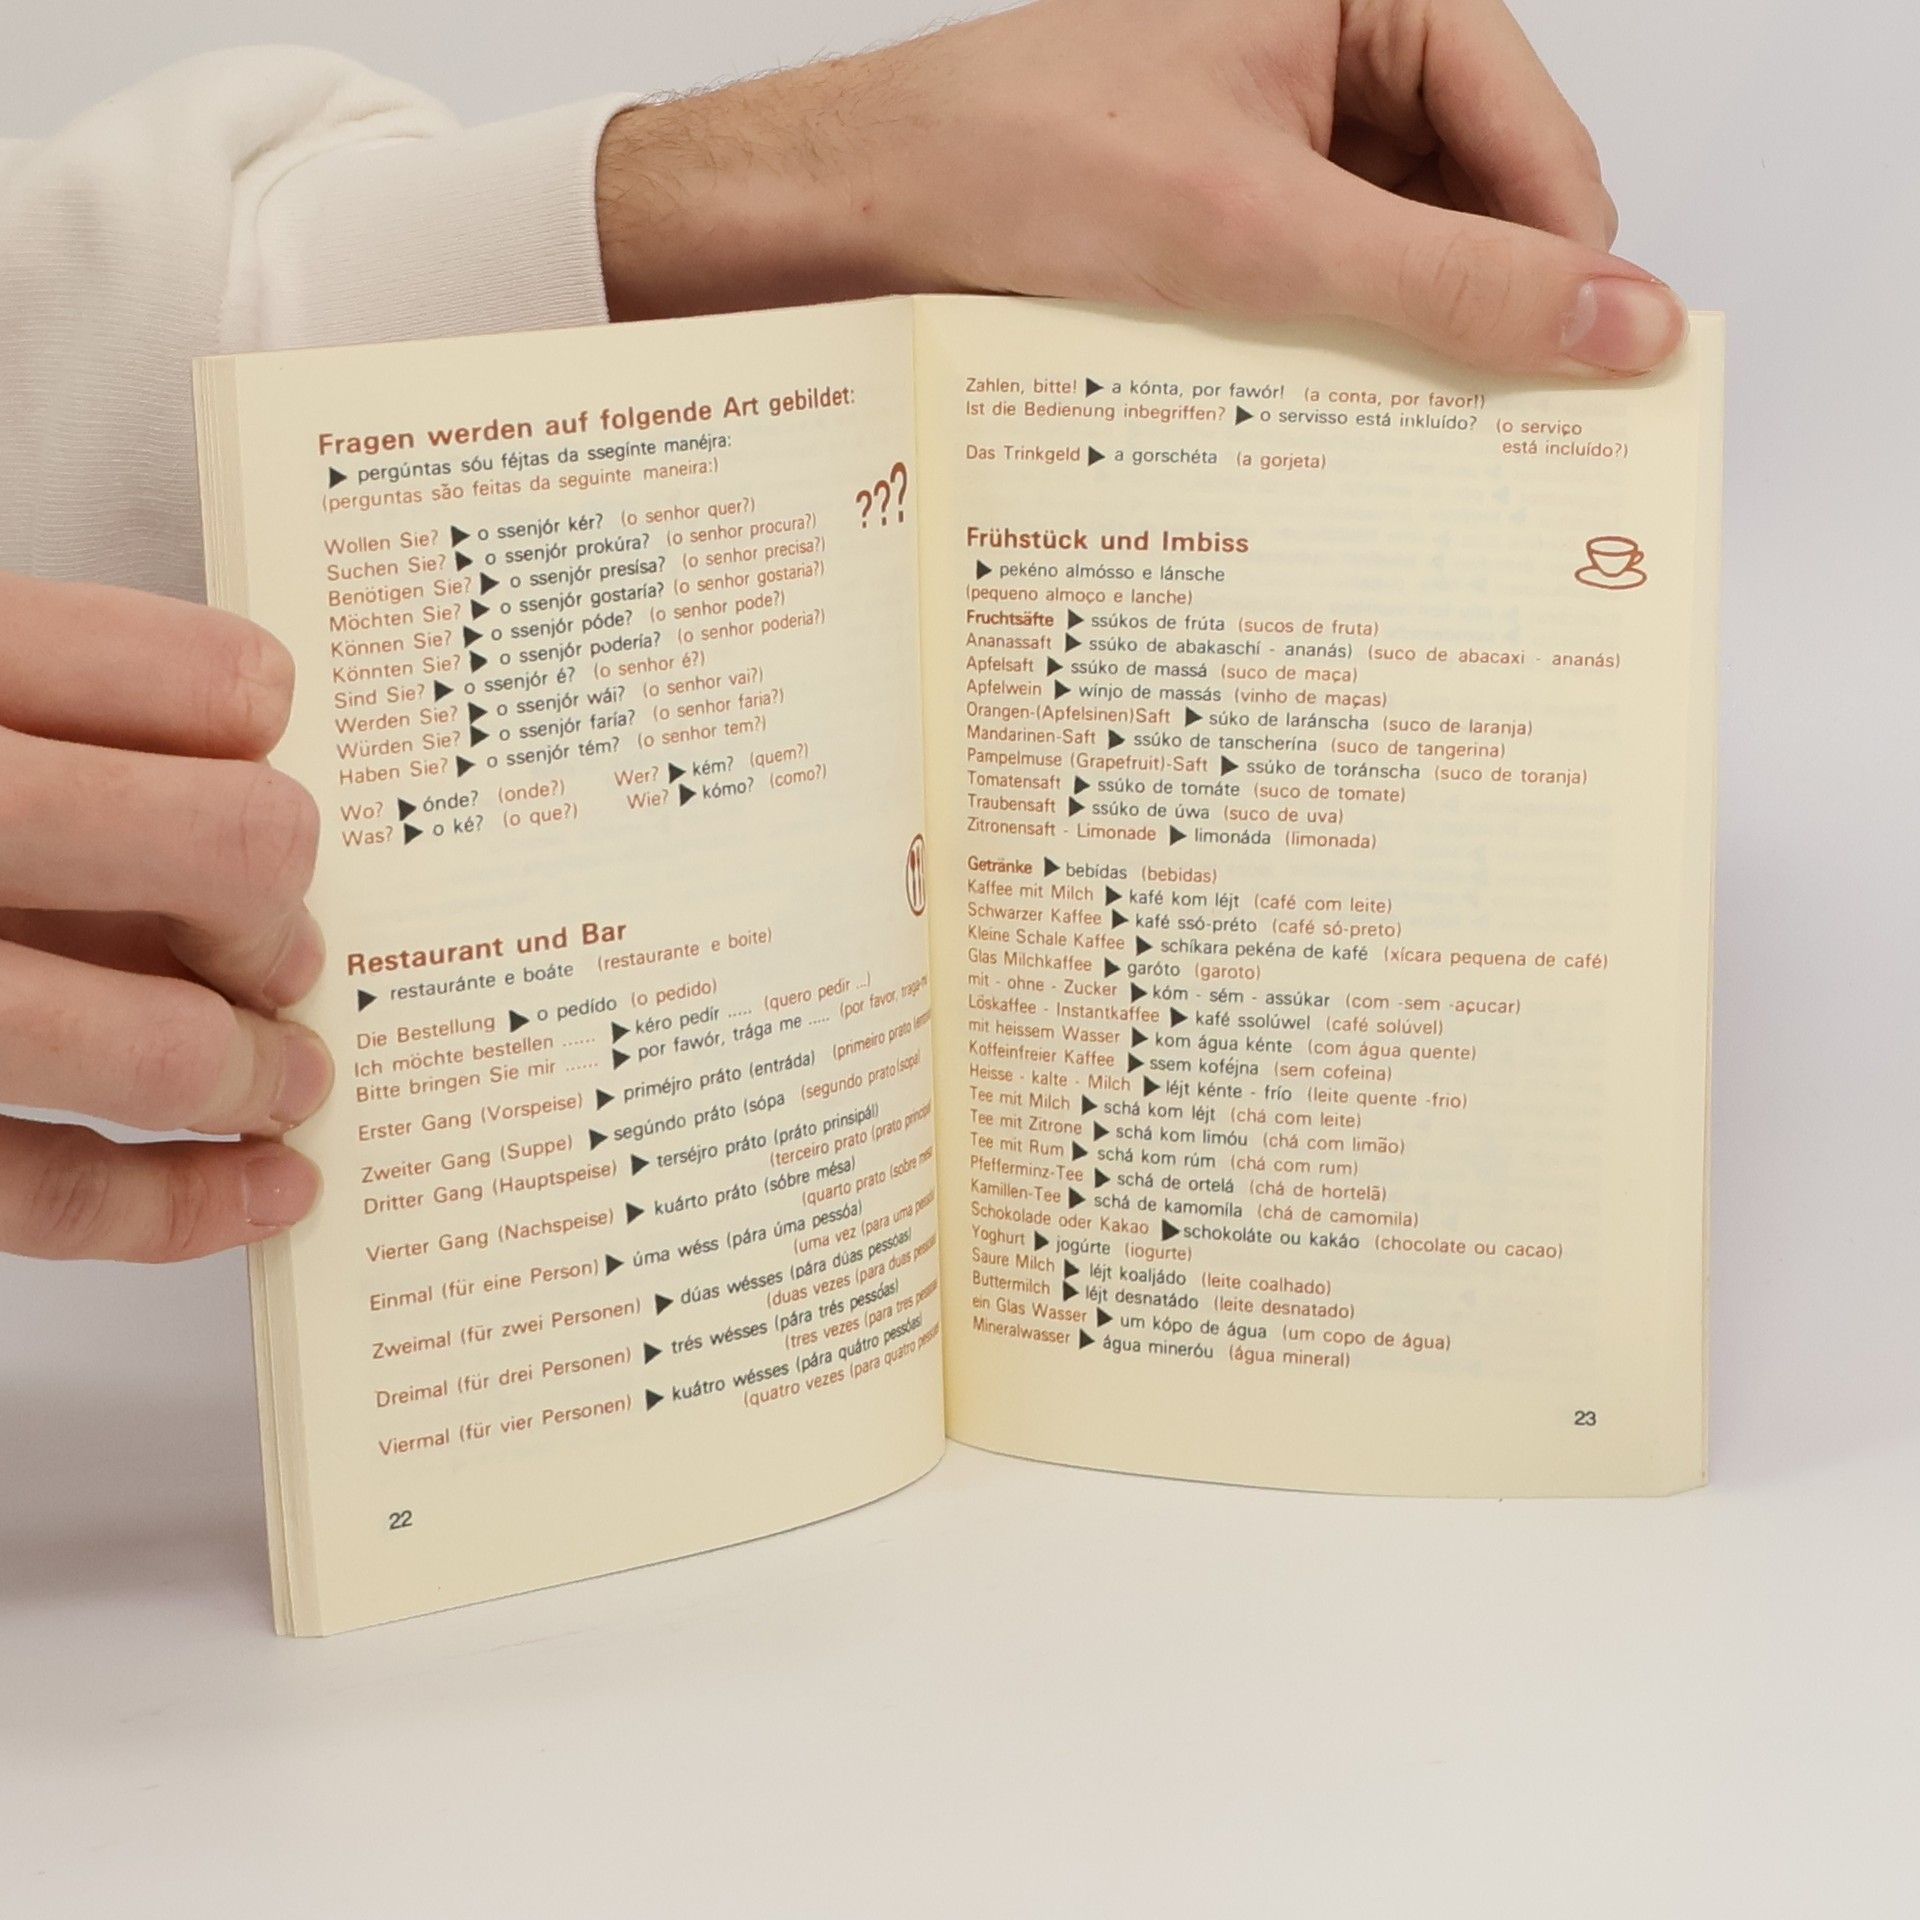 Fragen werden auf folgende Art gebildet:
▶ pergúntas sóu féjtas da ssegínte manéjra:
(perguntas são feitas da seguinte maneira:)
???
Wollen Sie? ▶ o ssenjór kér? (o senhor quer?)
Suchen Sie? ▶ o ssenjór prokúra? (o senhor procura?)
Benötigen Sie? ▶ o ssenjór presísa? (o senhor precisa?)
Möchten Sie? ▶ o ssenjór gostaría? (o senhor gostaria?)
Können Sie? ▶ o ssenjór póde? (o senhor pode?)
Könnten Sie? ▶ o ssenjór podería? (o senhor poderia?)
Sind Sie? ▶ o ssenjór é? (o senhor é?)
Werden Sie? ▶ o ssenjór wái? (o senhor vai?)
Würden Sie? ▶ o ssenjór faría? (o senhor faria?)
Haben Sie? ▶ o ssenjór tém? (o senhor tem?)
Wo? ▶ ónde? (onde?) Wer? ▶ kém? (quem?)
Was? ▶ o ké? (o que?) Wie? ▶ kómo? (como?)
Restaurant und Bar
▶ restauránte e boáte (restaurante e boite)
Die Bestellung ▶ o pedído (o pedido)
Ich möchte bestellen ...... ▶ kéro pedír ..... (quero pedir ...)
Bitte bringen Sie mir ...... ▶ por fawór, trága me ..... (por favor,
Erster Gang (Vorspeise) ▶ priméjro práto (entráda) (primeiro prato
Zweiter Gang (Suppe) ▶ segúndo práto (sópa (segundo prato (sopa)
Dritter Gang (Hauptspeise) ▶ terséjro práto (práto prinsipál)
(terceiro prato (prato
Vierter Gang (Nachspeise) ▶ kuárto práto (sóbre mésa)
(quarto prato (sobre
Einmal (für eine Person) ▶ úma wéss (pára úma pessóa)
(uma vez (para uma
Zweimal (für zwei Personen) ▶ dúas wésses (pára dúas pessóas)
(duas vezes (para duas
Dreimal (für drei Personen) ▶ trés wésses (pára trés pessóas)
(tres vezes (para tres
Viermal (für vier Personen) ▶ kuátro wésses (pára quátro pessóas)
(quatro vezes (para quatro
22
Zahlen, bitte! ▶ a kónta, por fawór! (a conta, por favor!)
Ist die Bedienung inbegriffen? ▶ o servisso está inkluído? (o serviço
está incluído?)
Das Trinkgeld ▶ a gorschéta (a gorjeta)
Frühstück und Imbiss
▶ pekéno almósso e lánsche
(pequeno almoço e lanche)
Fruchtsäfte ▶ ssúkos de frúta (sucos de fruta)
Ananassaft ▶ ssúko de abakaschí - ananás) (suco de abacaxi - ananás)
Apfelsaft ▶ ssúko de massá (suco de maça)
Apfelwein ▶ wínjo de massás (vinho de maças)
Orangen-(Apfelsinen)Saft ▶ súko de laránscha (suco de laranja)
Mandarinen-Saft ▶ ssúko de tanscherína (suco de tangerina)
Pampelmuse (Grapefruit)-Saft ▶ ssúko de toránscha (suco de toranja)
Tomatensaft ▶ ssúko de tomáte (suco de tomate)
Traubensaft ▶ ssúko de úwa (suco de uva)
Zitronensaft - Limonade ▶ limonáda (limonada)
Getränke ▶ bebídas (bebidas)
Kaffee mit Milch ▶ kafé kom léjt (café com leite)
Schwarzer Kaffee ▶ kafé ssó-préto (café só-preto)
Kleine Schale Kaffee ▶ schíkara pekéna de kafé (xícara pequena de café)
Glas Milchkaffee ▶ garóto (garoto)
mit - ohne - Zucker ▶ kóm - sém - assúkar (com -sem -açucar)
Löskaffee - Instantkaffee ▶ kafé ssolúwel (café solúvel)
mit heissem Wasser ▶ kom água kénte (com água quente)
Koffeinfreier Kaffee ▶ ssem koféjna (sem cofeina)
Heisse - kalte - Milch ▶ léjt kénte - frío (leite quente -frio)
Tee mit Milch ▶ schá kom léjt (chá com leite)
Tee mit Zitrone ▶ schá kom limóu (chá com limão)
Tee mit Rum ▶ schá kom rúm (chá com rum)
Pfefferminz-Tee ▶ schá de ortelá (chá de hortelã)
Kamillen-Tee ▶ schá de kamomíla (chá de camomila)
Schokolade oder Kakao ▶ schokoláte ou kakáo (chocolate ou cacao)
Yoghurt ▶ jogúrte (iogurte)
Saure Milch ▶ léjt koaljádo (leite coalhado)
Buttermilch ▶ léjt desnatádo (leite desnatado)
ein Glas Wasser ▶ um kópo de água (um copo de água)
Mineralwasser ▶ água mineróu (água mineral)
23